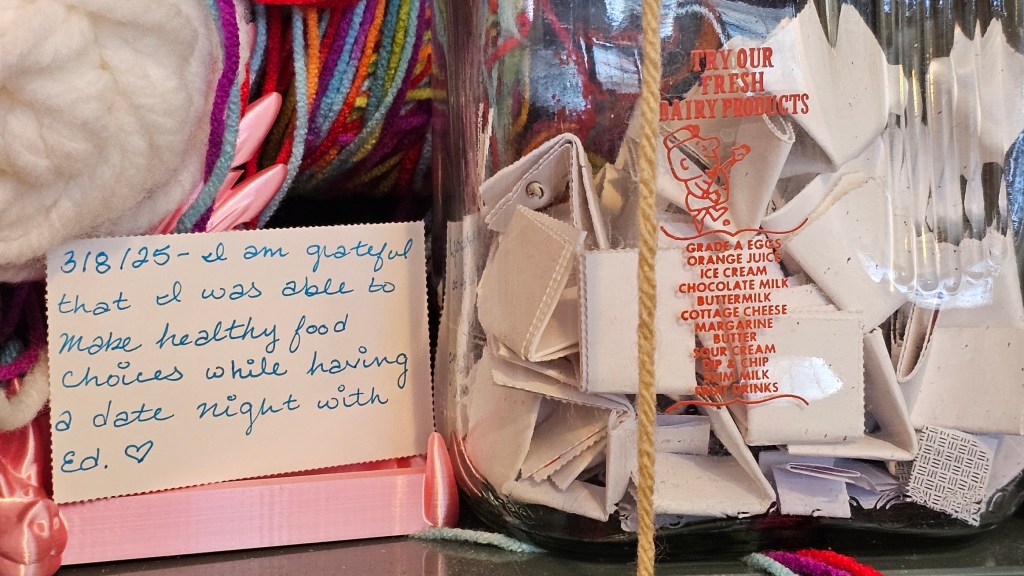 3/8/25 - I am grateful
that I was able to
make healthy food
choices while having
a date night with
Ed. ♡
TRY OUR
FRESH
DAIRY PRODUCTS
GRADE A EGGS
ORANGE JUICE
ICE CREAM
CHOCOLATE MILK
BUTTERMILK
COTTAGE CHEESE
MARGARINE
BUTTER
SOUR CREAM
DIP & CHIP
SKIM MILK
DRINKS